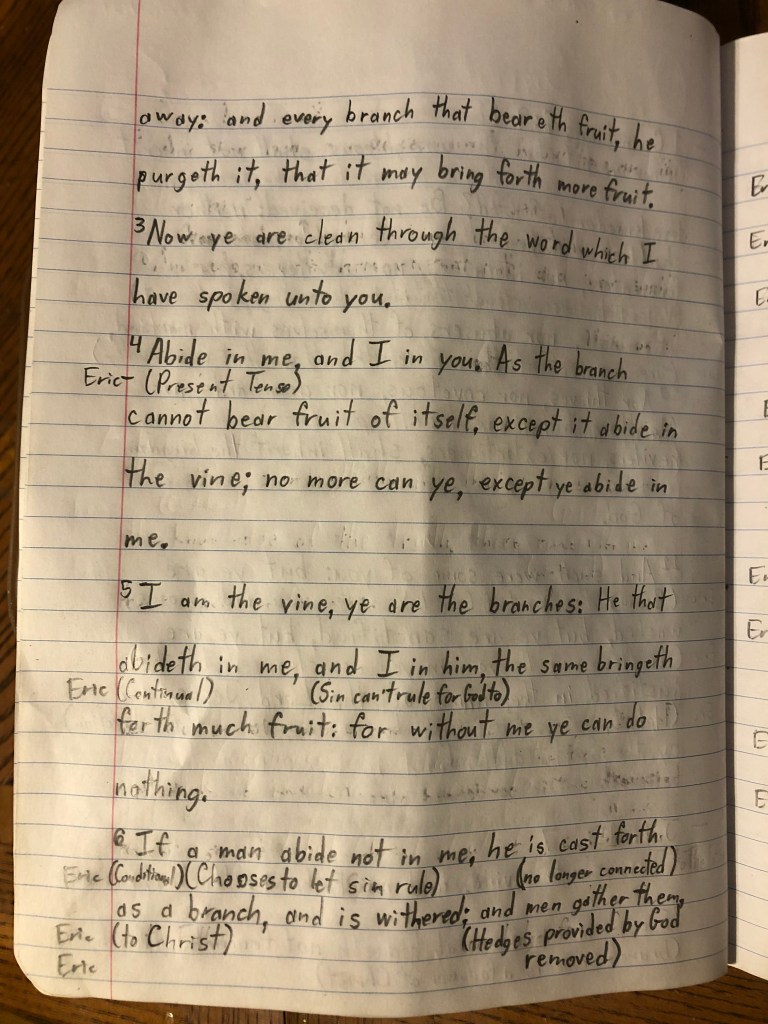 away: and every branch that beareth fruit, he
purgeth it, that it may bring forth more fruit.
3 Now ye are clean through the word which I
have spoken unto you.
4 Abide in me, and I in you. As the branch
Eric- (Present Tense)
cannot bear fruit of itself, except it abide in
the vine; no more can ye, except ye abide in
me.
5 I am the vine, ye are the branches: He that
abideth in me, and I in him, the same bringeth
Eric (Continual) (Sin can't rule for God to)
forth much fruit: for without me ye can do
nothing.
6 If a man abide not in me, he is cast forth
Eric (Conditional) (Chooses to let sin rule) (no longer connected)
as a branch, and is withered; and men gather them,
Eric (to Christ) (Hedges provided by God
Eric removed)